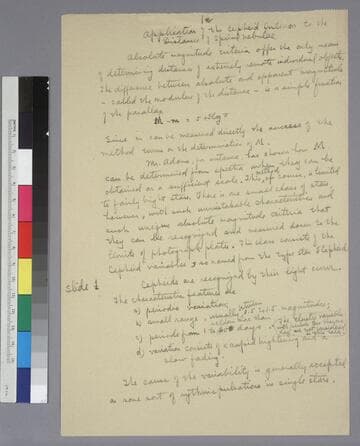 1a
Application of the Cepheid Criterion to the
Distance of Spiral Nebulae
Absolute magnitude criteria offer the only means
of determining distances of extremely remote individual objects.
The difference between absolute and apparent magnitude
- called the modulus of the distance - is a simple function
of the parallax
M - m = 5 + 5 log π
Since m can be measured directly the success of the
method turns on the determination of M.
Mr. Adams, for instance has shown how M
can be determined from spectra when they can be
obtained on a sufficient scale. This method, of course, is limited
to fairly bright stars. There is one small class of stars
however, with such unmistakable characteristics and
such unique absolute magnitude criteria that
they can be recognized and measured down to the
limits of photographic plates. This class consists of the
Cepheid variables so named from the type star δ Cephei.
Slide 1
Cepheids are recognized by their light curve.
The characteristic features are
a) periodic variation
b) small range, usually 0.5 to 1.5 magnitudes;
c) periods from 1 to days.
d) variation consists of a rapid brightening and a
slow fading.
The cause of the variability is generally accepted
as some sort of rythmic pulsations in single stars.